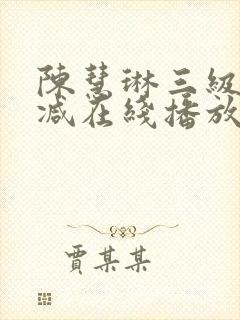 陳慧琳三級
減在綫播放
賈某某